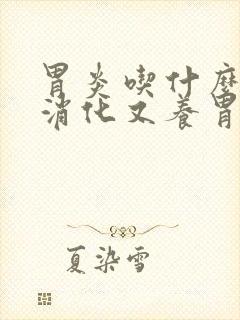 胃炎喫什麼
消化又養胃
夏染雪